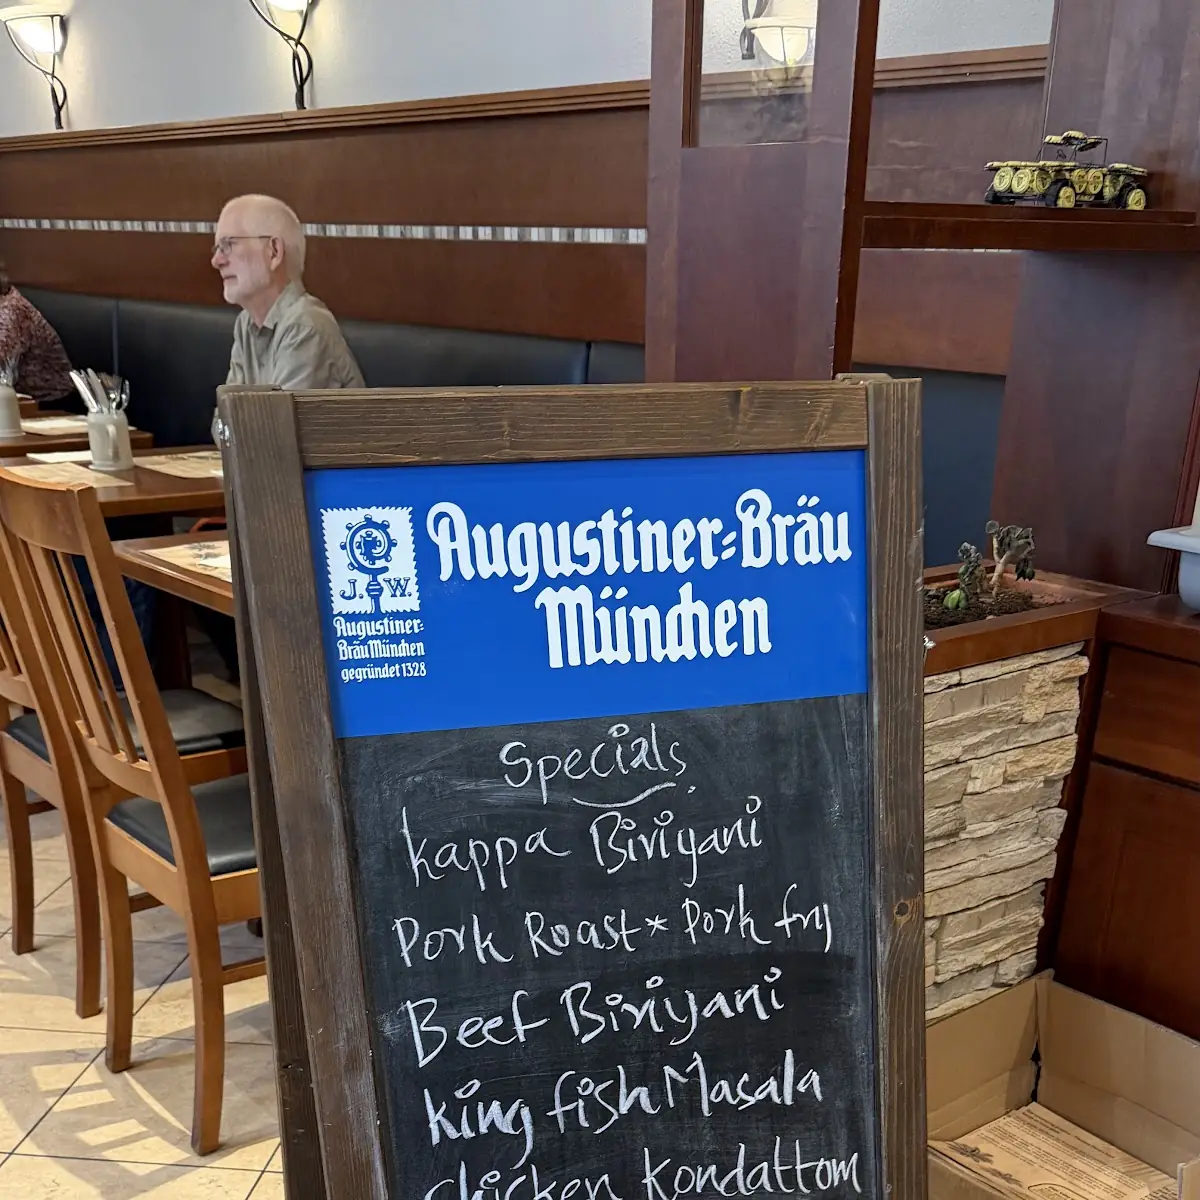 Augustiner-Bräu
München
J. W.
Augustiner-
Bräu München
gegründet 1328
Specials
kappa Biriyani
Pork Roast * Pork fry
Beef Biriyani
king fish Masala
chicken Kondattom